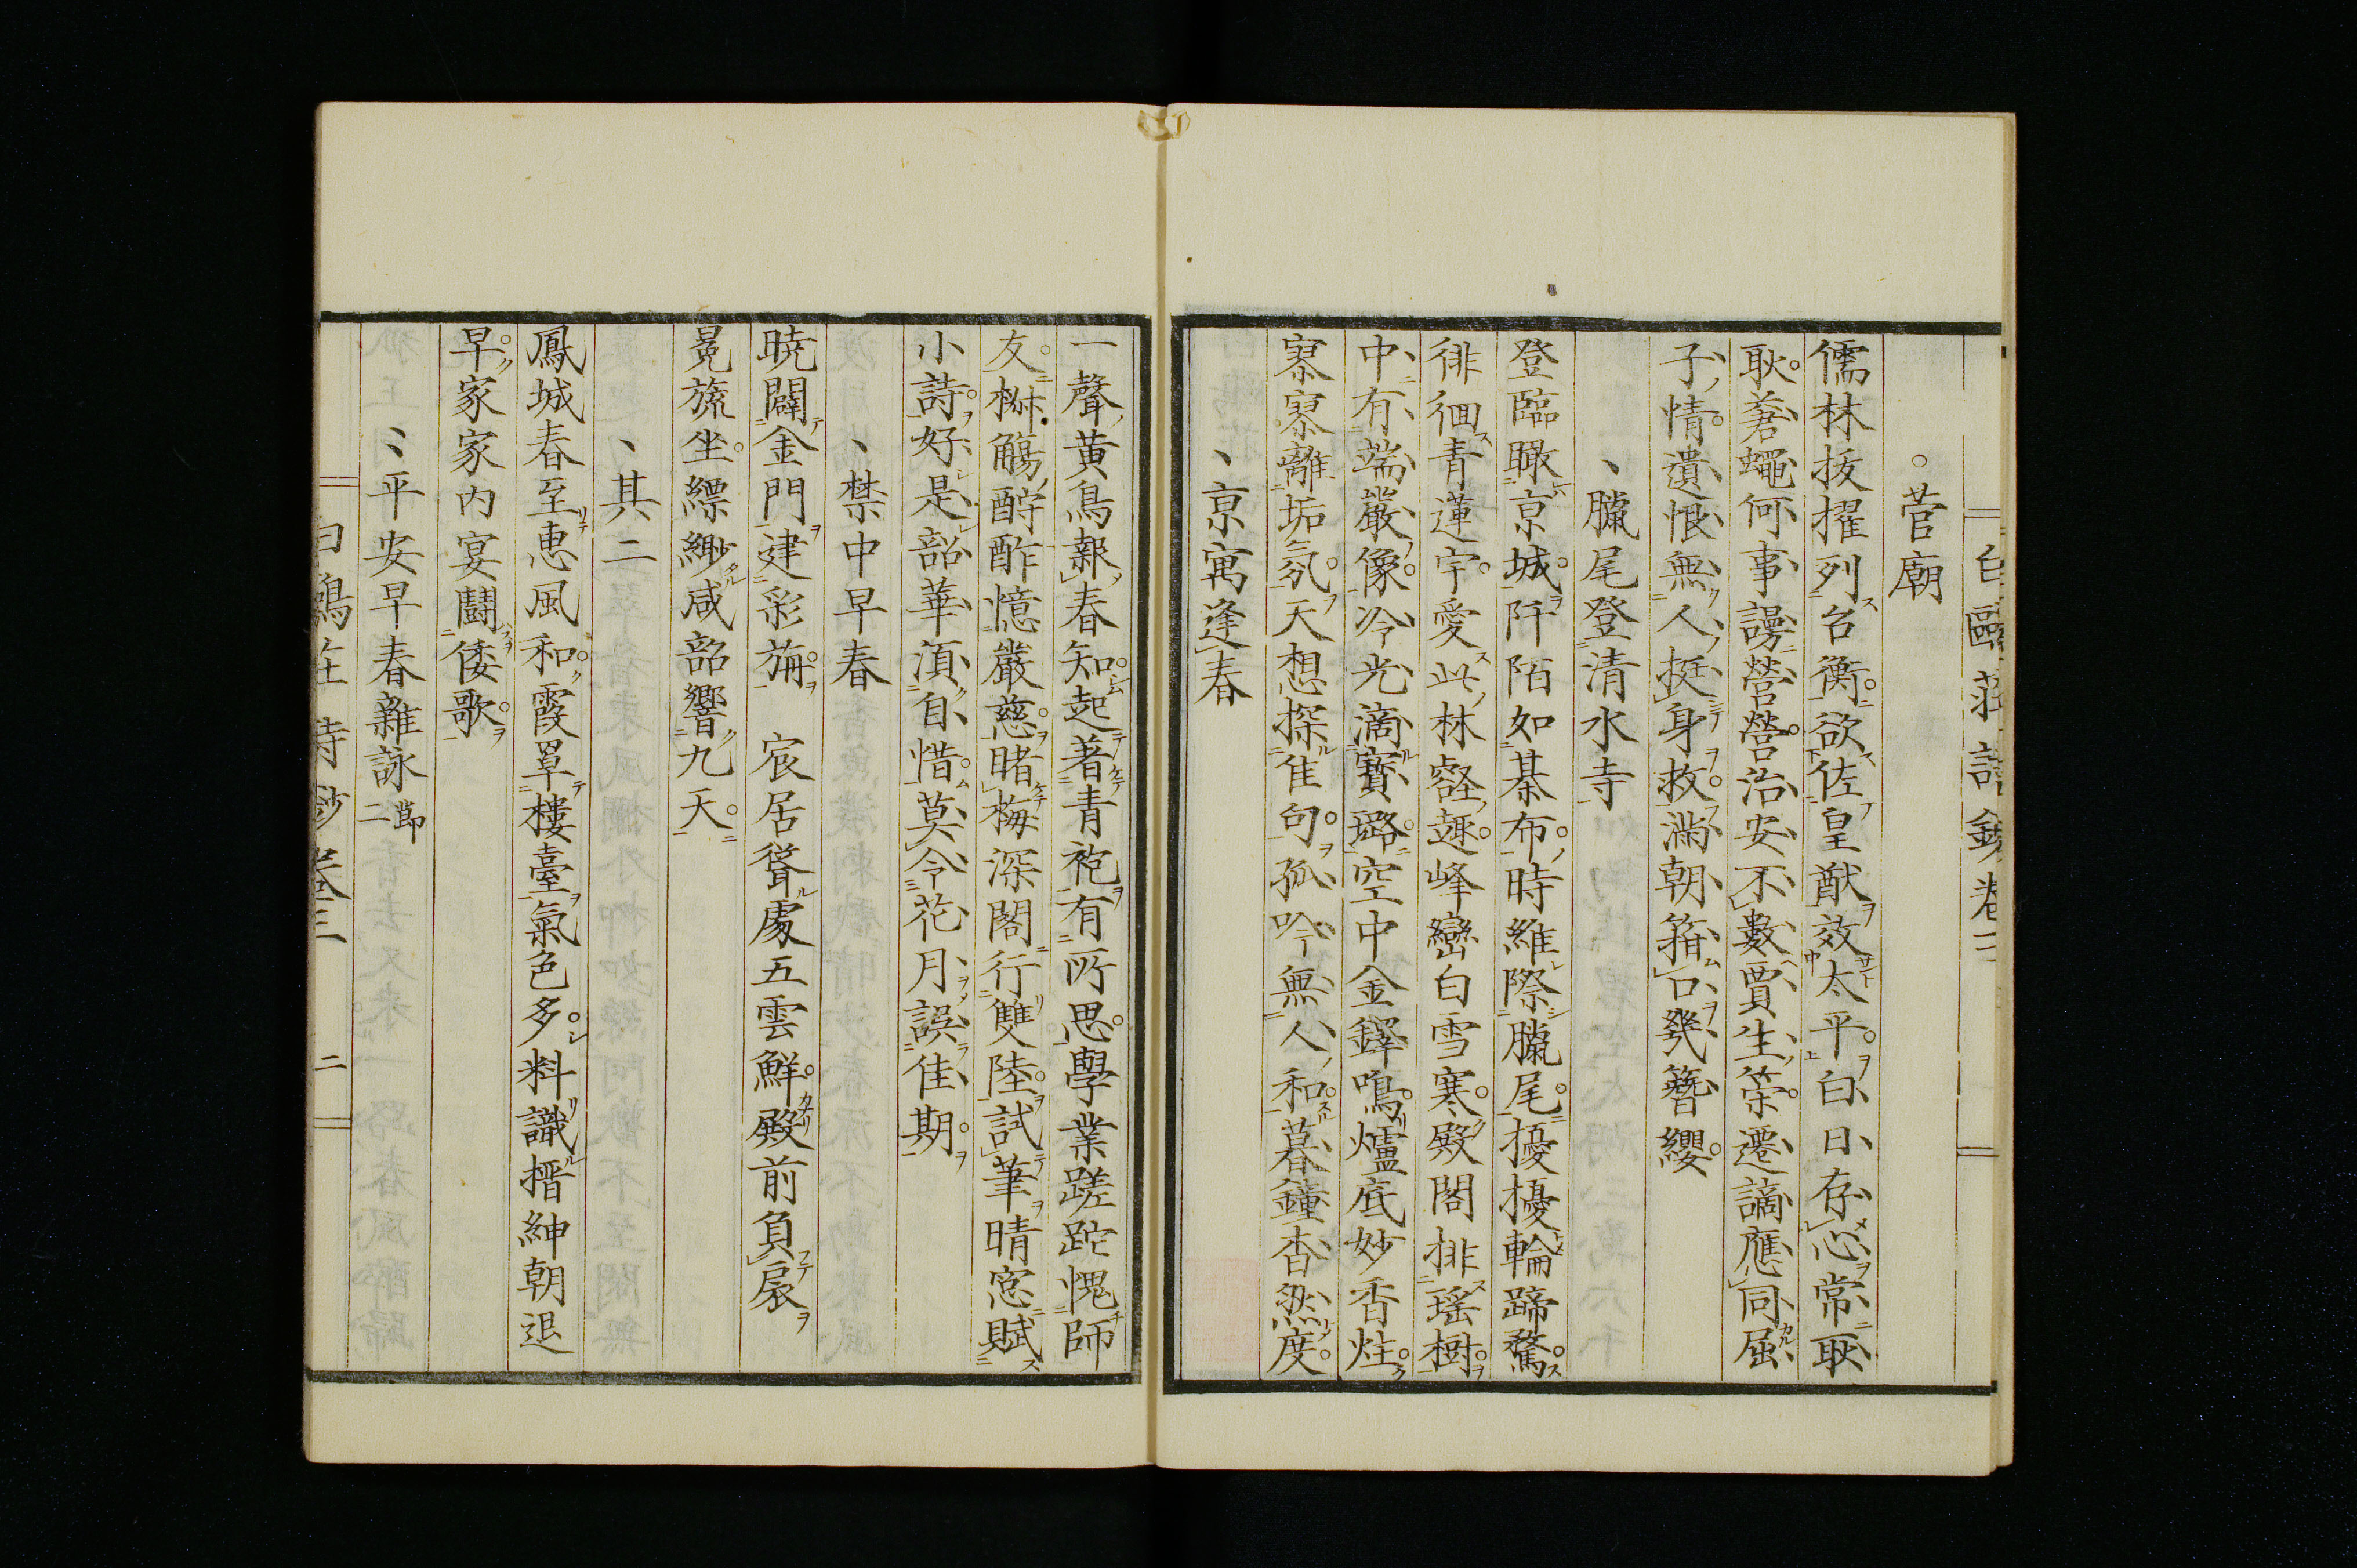 白鷗莊詩鈔卷三
菅廟
儒林拔擢列台衡欲佐皇猷效太平白日存心常耿
耿蒼蠅何事謾營營治安不數賈生策遷謫應同屈
子情遺恨無人挺身救滿朝簪口發簪纓
臘尾登清水寺
登臨瞰京城阡陌如棊布時維際臘尾擾擾輪蹄騖
徘徊青蓮宇愛此林壑趣峰巒白雪寒殿閣排瑤樹
中有端嚴像冷光滴寶璐空中金鐸鳴爐底妙香炷
寥寥離垢氛天想探佳句孤吟無人和暮鐘杳然度
京寓逢春
一聲黃鳥報春知起著青袍有所思學業蹉跎愧師
友椒觴酹酢憶嚴慈睹梅深閣行雙陸試筆晴窓賦
小詩好是韶華須自惜莫令花月誤佳期
禁中早春
曉闢金門建彩旃 宸居聳處五雲鮮殿前負扆
冕旒坐縹緲咸韶響九天
其二
鳳城春至惠風和霞罩樓臺氣色多料識搢紳朝退
早家家內宴鬪倭歌
平安早春雜詠 節二
白鷗莊詩鈔卷三 二